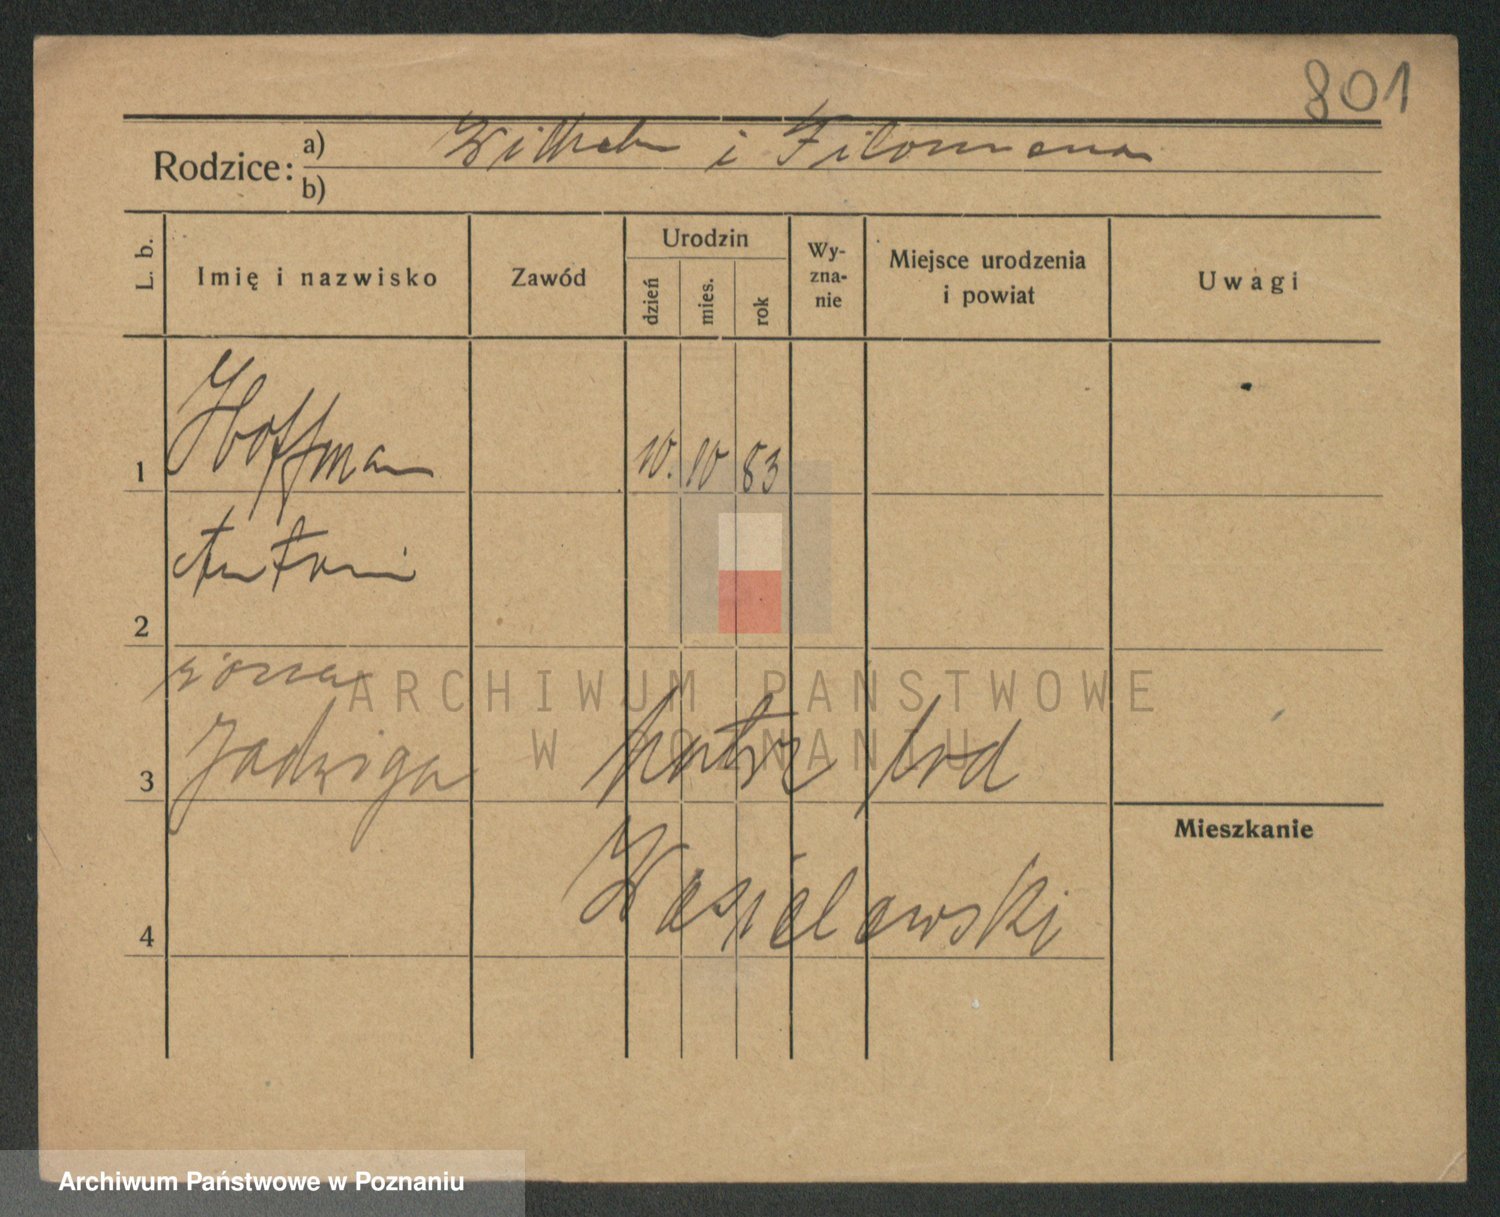 801
Rodzice: a) Wilhelm i Filomena
b)
L. b. Imię i nazwisko Zawód Urodzin dzień mies. rok Wy-zna-nie Miejsce urodzenia i powiat Uwagi
1 Hoffman 10. 10 83
Antoni
2
żona
3 Jadwiga patrz pod
Mieszkanie
Wasielewski
4
ARCHIWUM PAŃSTWOWE
W POZNANIU
Archiwum Państwowe w Poznaniu